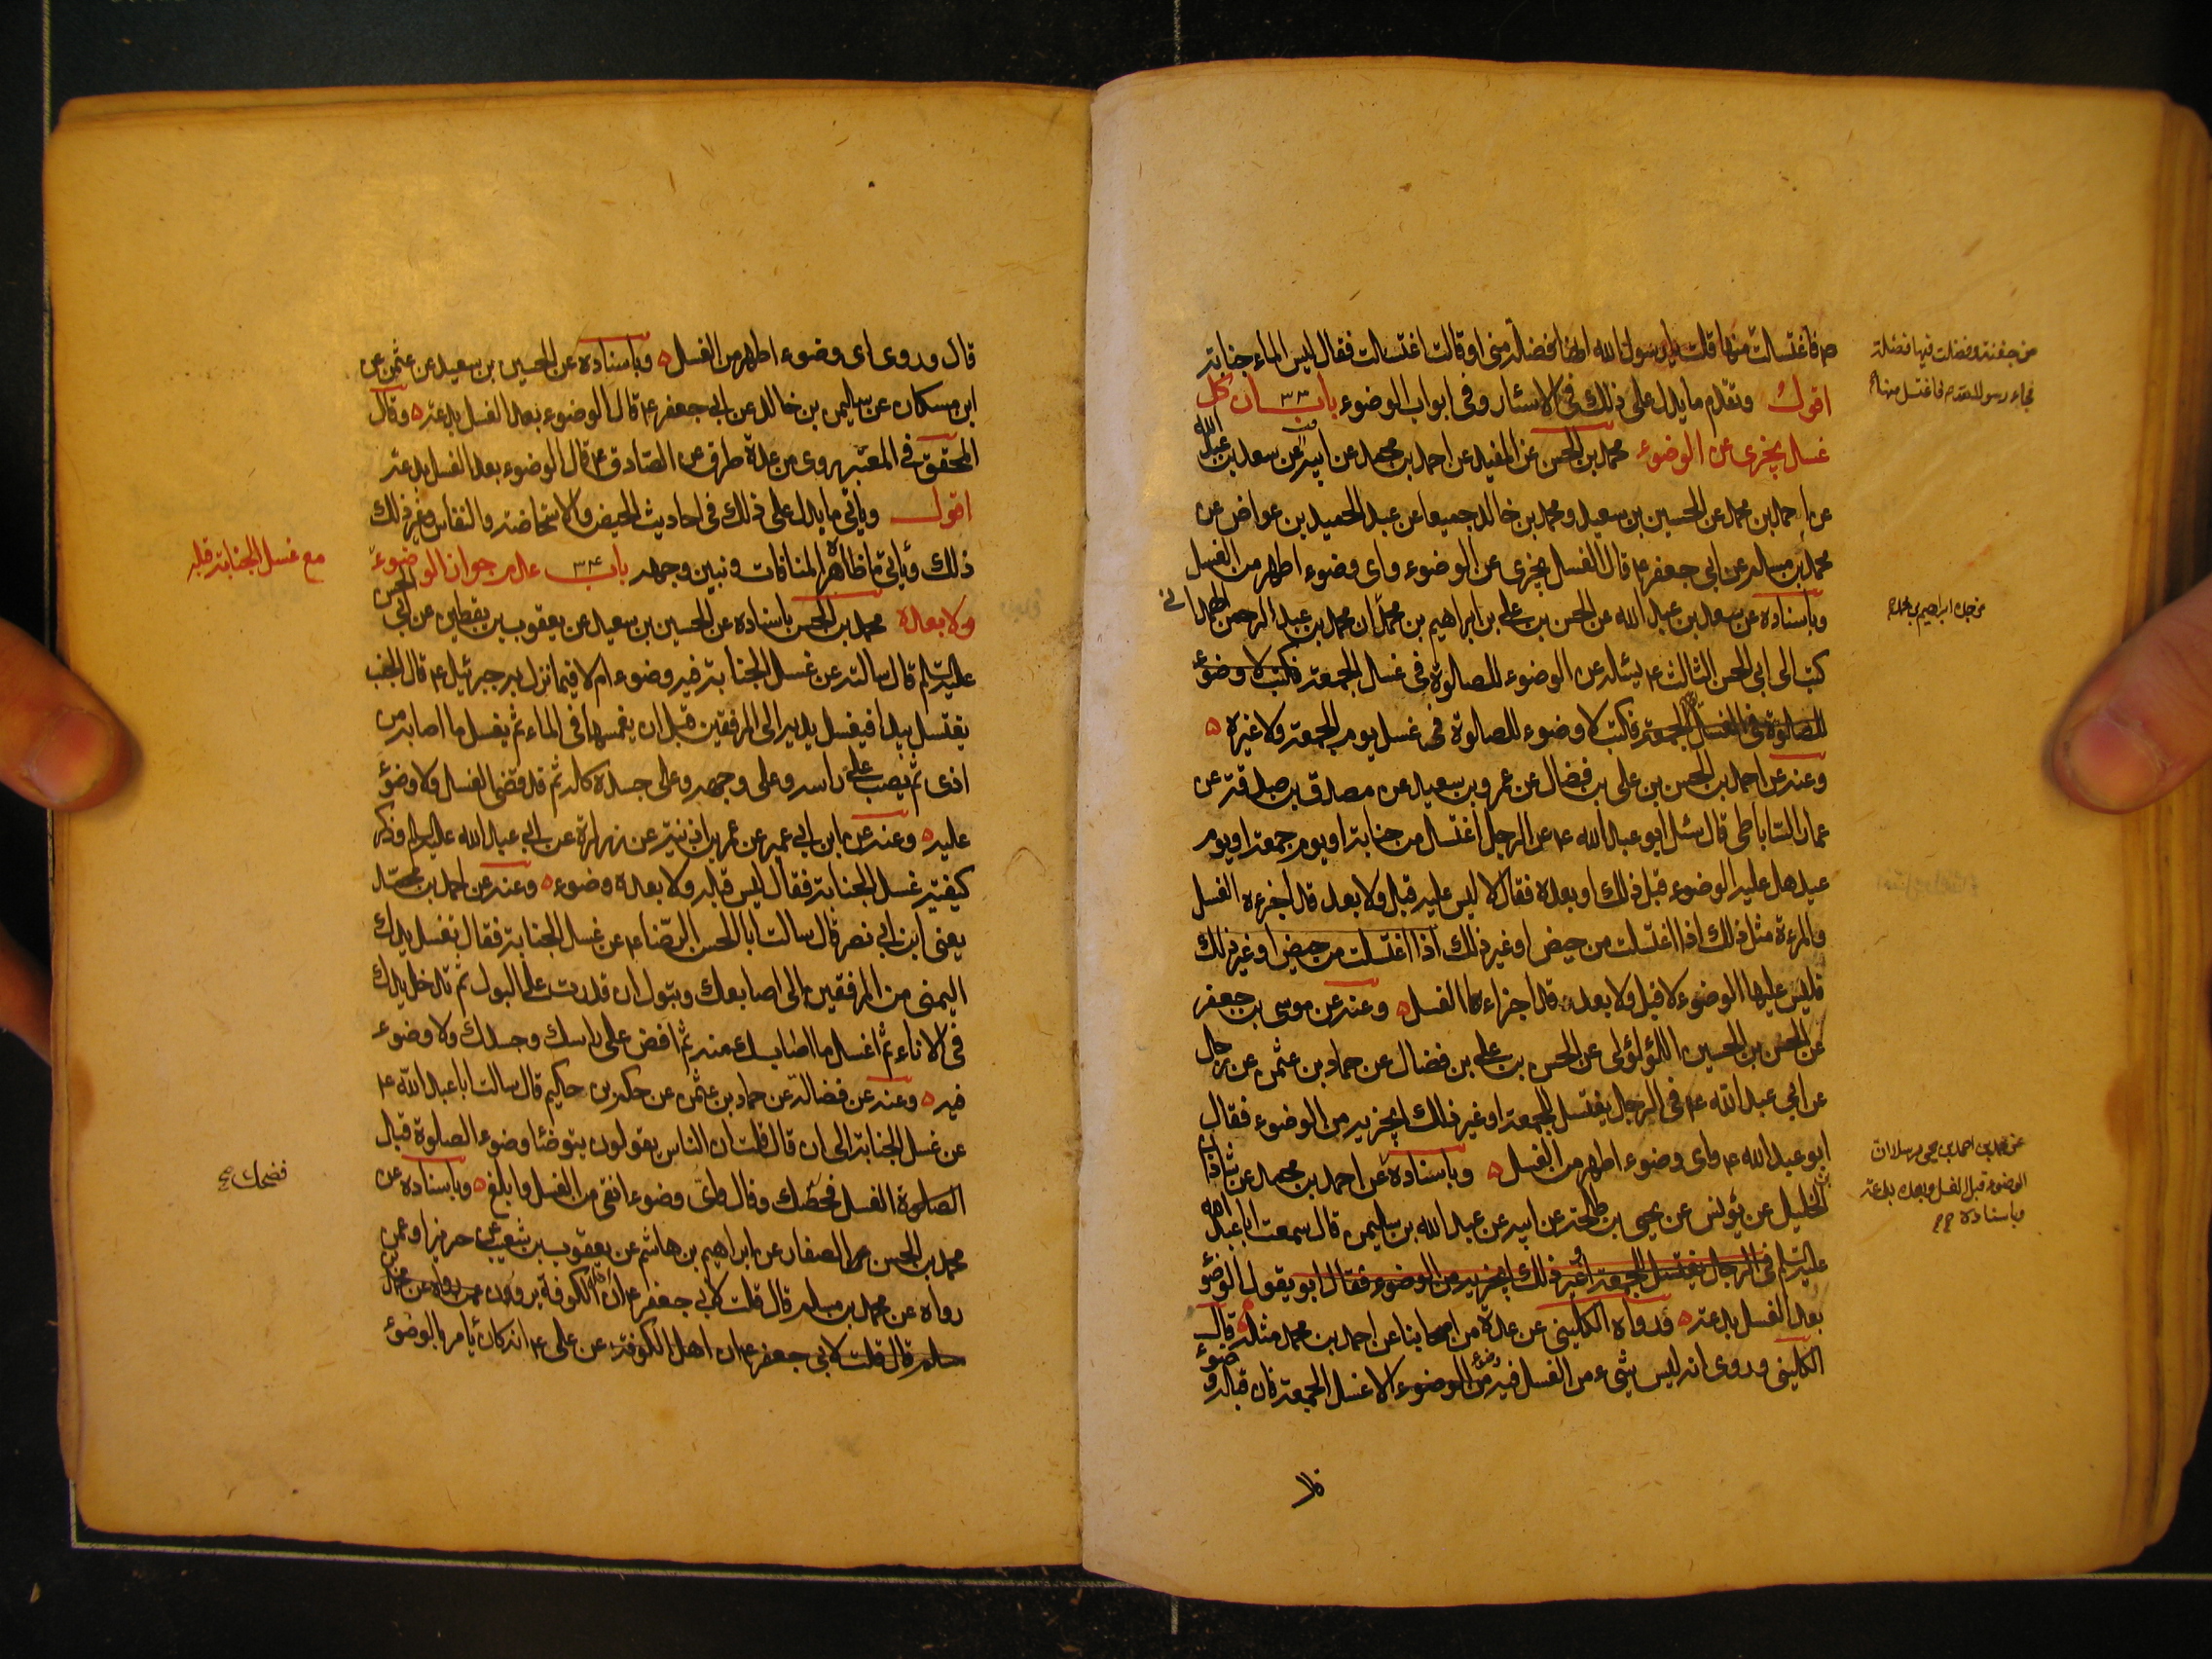 ص فاغتسلت منها قلت يا رسول الله انها فضلة منى او قالت اغتسلت فقال ليس الماء جنابة
من جفنة وفضلت فيها فضلة
فجاء رسول الله ص فاغتسل منها
اقول وتقدم ما يدل على ذلك فى الاسئار وفى ابواب الوضوء باب ٣٣ ان كل
غسل يجزى عن الوضوء محمد بن الحسن عن المفيد عن احمد بن محمد عن ابيه عن سعد بن عبد الله
عن احمد بن محمد عن الحسين بن سعيد ومحمد بن خالد جميعا عن عبد الحميد بن عواض عن
محمد بن مسلم عن ابى جعفر ع قال الغسل يجزى عن الوضوء واى وضوء اطهر من الغسل
وباسناده عن سعد بن عبد الله عن الحسن بن على بن ابراهيم بن محمد ان محمد بن عبد الرحمن الهمدانى
عن جده ابراهيم بن محمد
كتب الى ابى الحسن الثالث ع يسئله عن الوضوء للصلوة فى غسل الجمعة فكتب لا وضوء
للصلوة فى الغسل الجمعة فكتب لا وضوء للصلوة فى غسل يوم الجمعة ولا غيره ه
وعنه عن احمد بن الحسن بن على بن فضال عن عمرو بن سعيد عن مصدق بن صدقة عن
عمار الساباطى قال سئل ابو عبد الله ع عن الرجل اغتسل من جنابة او يوم جمعة او يوم
عيد هل عليه الوضوء قبل ذلك او بعده فقال لا ليس عليه قبل ولا بعد قد اجزءه الغسل
والمرءة مثل ذلك اذا اغتسلت من حيض او غير ذلك اذا اغتسلت من حيض او غير ذلك
فليس عليها الوضوء لا قبل ولا بعد قد اجزاءها الغسل ه وعنه عن موسى بن جعفر
عن الحسن بن الحسين اللؤلؤى عن الحسن بن على بن فضال عن حماد بن عثمن عن رجل
عن ابى عبد الله ع فى الرجل يغتسل للجمعة او غير ذلك ايجزيه من الوضوء فقال
ابو عبد الله ع واى وضوء اطهر من الغسل ه وباسناده عن احمد بن محمد عن شاذان
عن محمد بن احمد بن يحيى مرسلا ان
الوضوء قبل الغسل وبعده بدعة
وباسناده
بن الخليل عن يونس عن يحيى بن طلحة عن ابيه عن عبد الله بن سليمن قال سمعت ابا عبد الله
عليه السلم فى الرجل يغتسل للجمعة او غير ذلك ايجزيه من الوضوء فقال ابو يقول الوضوء
بعد الغسل بدعة ه ورواه الكلينى عن عدة من اصحابنا عن احمد بن محمد مثله ه قال
الكلينى وروى انه ليس شىء من الغسل فيه وضوء الا غسل الجمعة فان قبله وضوء
قال وروى اى وضوء اطهر من الغسل ه وباسناده عن الحسين بن سعيد عن عثمن عن
ابن مسكان عن سليمن بن خالد عن ابى جعفر ع قال الوضوء بعد الغسل بدعة ه وقال
المحقق فى المعتبر روى من عدة طرق عن الصادق ع قال الوضوء بعد الغسل بدعة
اقول وياتى ما يدل على ذلك فى احاديث الحيض والاستحاضة والنفاس وغير ذلك
ذلك وياتى ما ظاهره المنافات ونبين وجهه باب ٣٤ عدم جواز الوضوء
مع غسل الجنابة قبله
ولا بعده محمد بن الحسن باسناده عن الحسين بن سعيد عن يعقوب بن يقطين عن ابى الحسن
عليه السلم قال سالته عن غسل الجنابة فيه وضوء ام لا فيما نزل به جبرئيل ع قال الجنب
يغتسل يبدا فيغسل يديه الى المرفقين قبل ان يغمسهما فى الماء ثم يغسل ما اصابه من
اذى ثم يصب على راسه وعلى وجهه وعلى جسده كله ثم قد قضى الغسل ولا وضوء
عليه ه وعنه عن ابن ابى عمير عن عمر بن اذينة عن زرارة عن ابى عبد الله عليه السلم وذكر
كيفية غسل الجنابة فقال ليس قبله ولا بعده وضوء ه وعنه عن احمد بن محمد
يعنى ابن ابى نصر قال سالت ابا الحسن الرضا ع عن غسل الجنابة فقال تغسل يدك
اليمنى من المرفقين الى اصابعك وتبول ان قدرت على البول ثم تدخل يدك
فى الاناء ثم اغسل ما اصابك منه ثم افض على راسك وجسدك ولا وضوء
فيه ه وعنه عن فضالة عن حماد بن عثمن عن حكم بن حكيم قال سالت ابا عبد الله ع
عن غسل الجنابة الى ان قال قلت ان الناس يقولون يتوضا وضوء الصلوة قبل
الصلوة الغسل فضحك وقال واى وضوء انقى من الغسل وابلغ ه وباسناده عن
فضحك
محمد بن الحسن الصفار عن ابراهيم بن هاشم عن يعقوب بن شعيب عن حريز او عمن
رواه عن محمد بن مسلم قال قلت لابى جعفر ع ان اهل الكوفة يروون عمن رواه عن محمد بن
مسلم قال قلت لابى جعفر ع ان اهل الكوفة عن على ع انه كان يامر بالوضوء